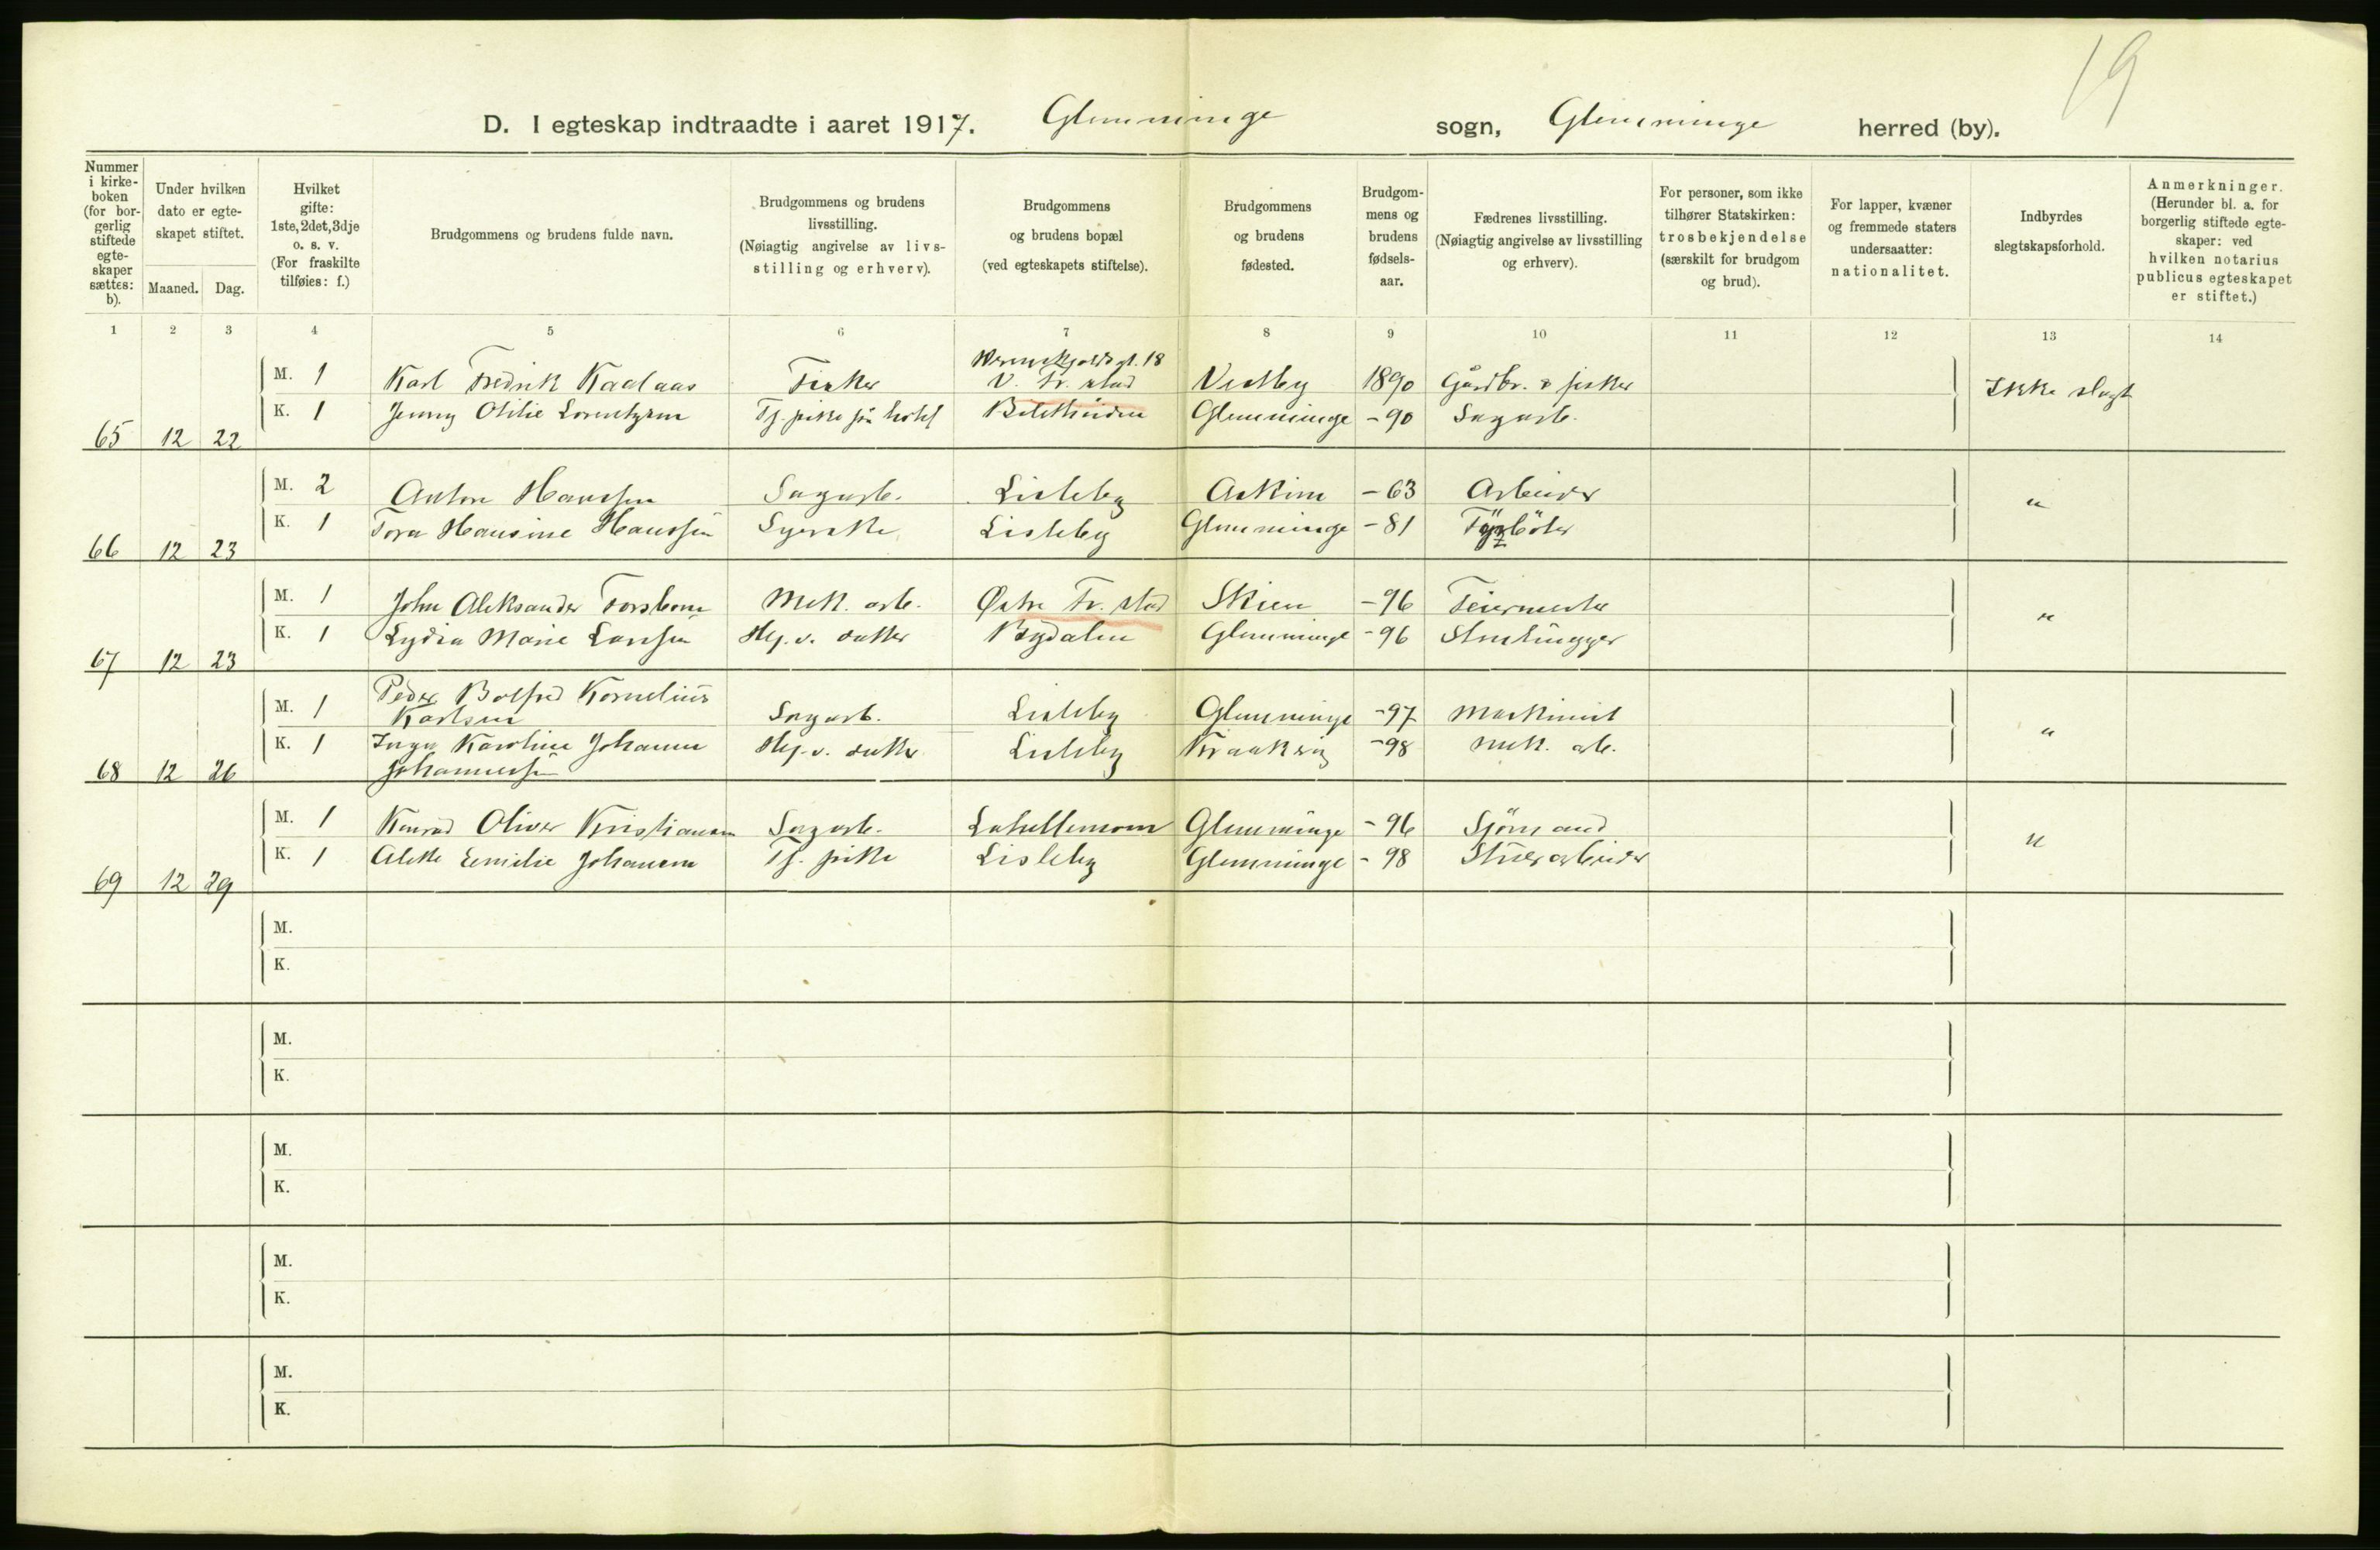 19
D. I egteskap indtraadte i aaret 1917. Glemminge sogn, Glemminge herred (by).
Nummer i kirkeboken (for borgerlig stiftede egteskaper sættes: b).
Under hvilken dato er egteskapet stiftet.
Maaned. Dag.
Hvilket gifte: 1ste, 2det, 3dje o. s. v. (For fraskilte tilføies: f.)
Brudgommens og brudens fulde navn.
Brudgommens og brudens livsstilling. (Nøiagtig angivelse av livsstilling og erhverv).
Brudgommens og brudens bopæl (ved egteskapets stiftelse).
Brudgommens og brudens fødested.
Brudgommens og brudens fødselsaar.
Fædrenes livsstilling. (Nøiagtig angivelse av livsstilling og erhverv).
For personer, som ikke tilhører Statskirken: trosbekjendelse (særskilt for brudgom og brud).
For lapper, kvæner og fremmede staters undersaatter: nationalitet.
Indbyrdes slegtskapsforhold.
Anmerkninger. (Herunder bl. a. for borgerlig stiftede egteskaper: ved hvilken notarius publicus egteskapet er stiftet.)
1 2 3 4 5 6 7 8 9 10 11 12 13 14
M. 1 Karl Fredrik Kaalaas Fisker V. Fr. stad Vestby 1890 Gårdbr. & fisker Ikke slegt
K. 1 Jenny Otilie Lorentzen Tj. pike på hotel Glemminge -90 Sagarb.
65 12 22
M. 2 Anton Hanssen Sagarb. Lisleby Askim -63 Arbeider "
K. 1 Tora Hansine Hanssen Syerske Lisleby Glemminge -81 Fyrböter
66 12 23
M. 1 John Aleksander Forsbom Mek. arb. Østre Fr. stad Skien -96 Feiermester "
K. 1 Lydia Marie Larssen Hj. v. datter Bydalen Glemminge -96 Stenhugger
67 12 23
M. 1 Peder Botfred Kornelius
Karlsen Sagarb. Lisleby Glemminge -97 Maskinist "
K. 1 Inga Karoline Johanne Hj. v. datter Lisleby Kraakerøy -98 Mek. arb.
Johannessen
68 12 26
M. 1 Konrad Oliver Kristiansen Sagarb. Lahellemoen Glemminge -96 Sjömand "
K. 1 Aleks Emilie Johansen Tj. pike Lisleby Glemminge -98 Stuerarbeider
69 12 29
M.
K.
M.
K.
M.
K.
M.
K.
M.
K.